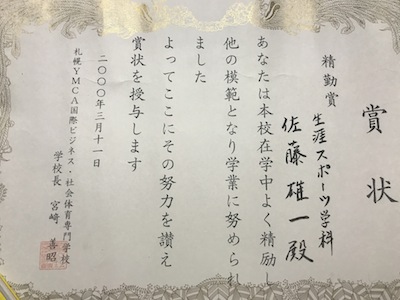 賞状
精勤賞
生涯スポーツ学科
佐藤確一殿
あなたは本校在学中よく精励し
他の模範となり学業に努められ
ました
よってここにその努力を讃え
賞状を授与します
二〇〇〇年三月十一日
札幌YMCA国際ビジネス・社会体育専門学校
学校長 宮﨑善昭